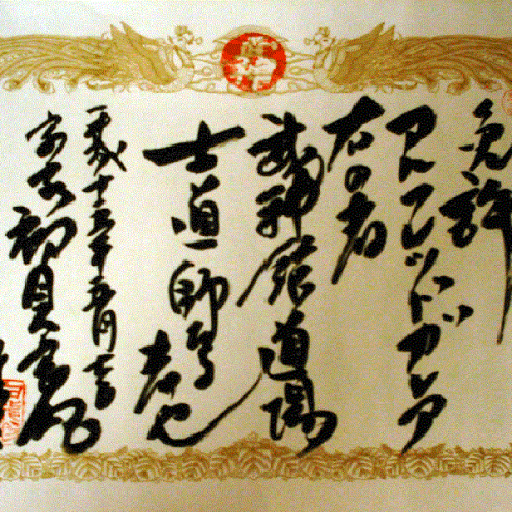 免許
アルフレッドガルシア
右の者
武神館道場
士道師号
者也
平成十五年五月
宗家初見